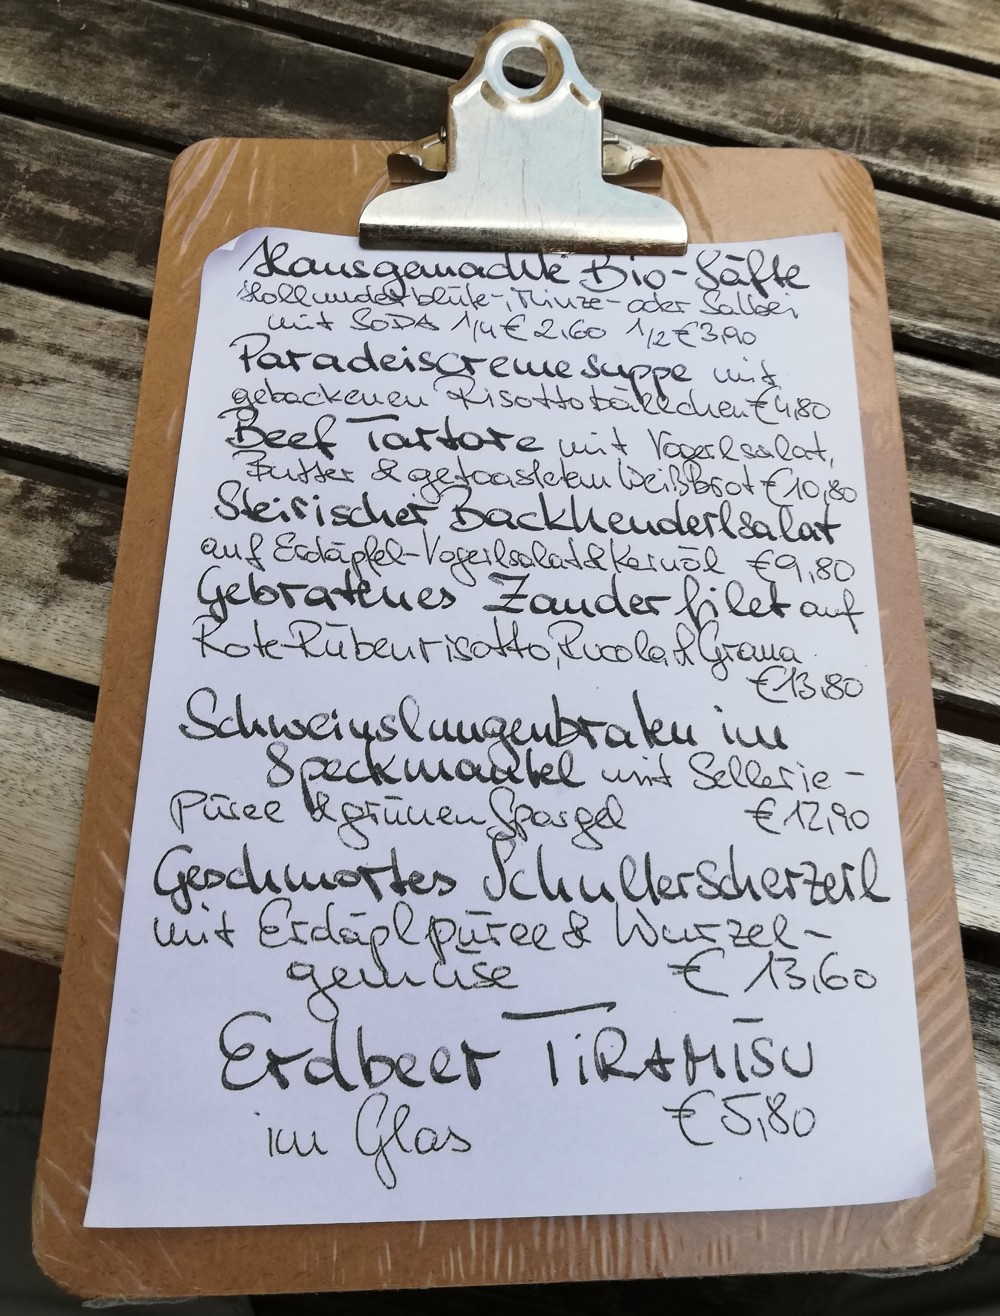 Hausgemachte Bio-Säfte
Hollunderblüte-, Minze- oder Salbei
mit SODA 1/4 € 2,60 1/2 € 3,90
Paradeiscremesuppe mit
gebackenen Risottobällchen € 4,80
Beef Tartare mit Vogerlsalat,
Butter & getoastetem Weißbrot € 10,80
Steirischer Backhenderlsalat
auf Erdäpfel-Vogerlsalat & Kernöl € 9,80
Gebratenes Zanderfilet auf
Rote-Rübenrisotto, Rucola & Grana
€ 13,80
Schweinslungenbraten im
Speckmantel mit Sellerie-
püree & grünen Spargel € 12,90
Geschmortes Schulterscherzerl
mit Erdäpfelpüree & Wurzel-
gemüse € 13,60
Erdbeer TiRAMISU
im Glas € 5,80